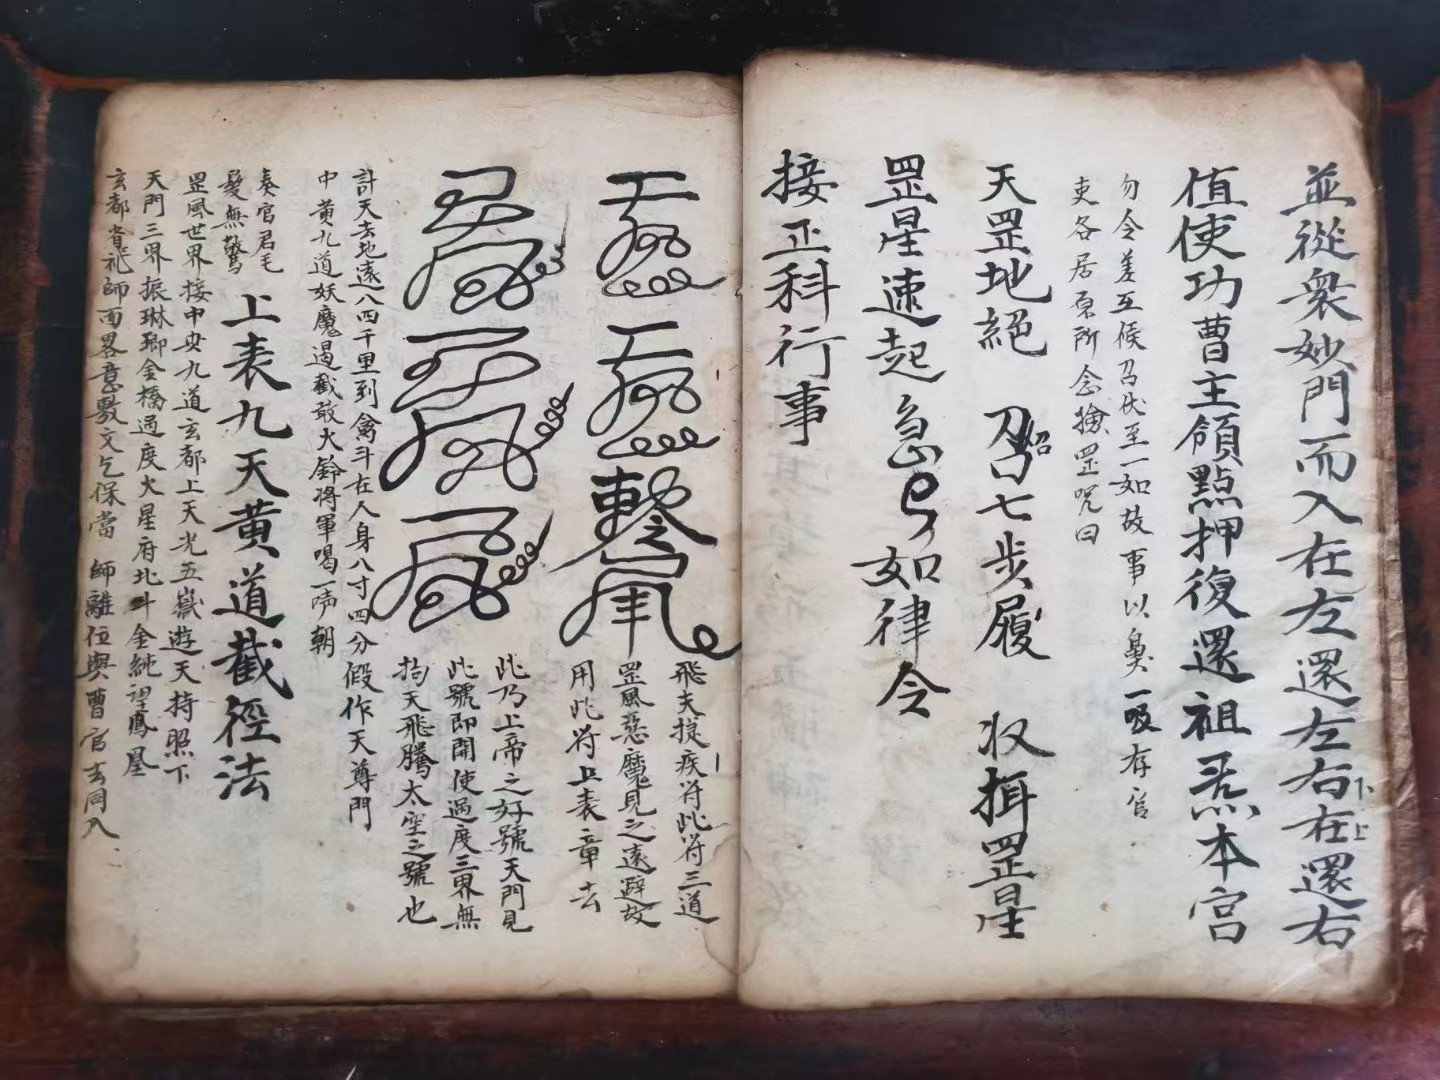 並從衆妙門而入在左還左右在還右
下上
值使功曹主領點押復還祖炁本宮
勿令差互候召伏至一如故事以鼻一吸存官
吏各居原所念撿罡咒曰
天罡地絕 召七步履 收揖罡星
罡星速起急急如律令
接正科行事
飛天捉疾符此符三道
罡風惡魔見之遠避故
用此符上表章去
此乃上帝之好號天門見
此號即開使過度三界無
拘天飛騰太空之號也
計天去地遠八四千里到禽斗在人身八寸四分 假作天尊門
中黄九道妖魔遏截敢大鈴將軍喝一声朝
奏官君毛
髮無驚
上表九天黄道截徑法
罡風世界接中央九道玄都上天光五嶽遊天持照下
天門三界振琳瑯金橋過度火星府北斗金純望鳳凰
玄都省祂師面畧意數文乞保當 師離位與曹官去同入